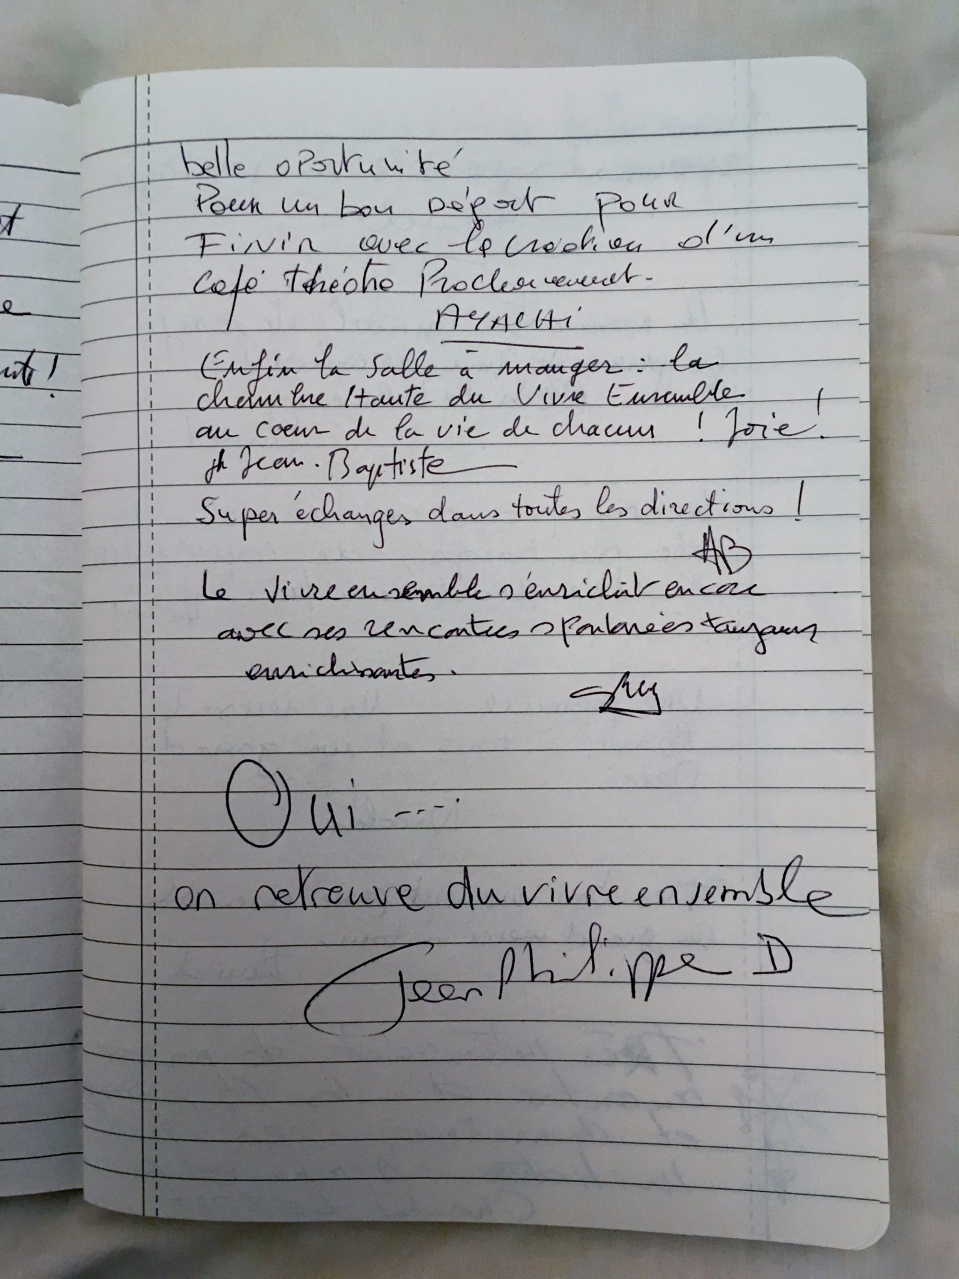 belle oportunité
Pour un bon Départ pour
Finir avec la création d'un
Café théâtre Prochainement.
AYACHI
Enfin la salle à manger : la
chambre Haute du Vivre Ensemble
au coeur de la vie de chacun ! Joie !
Jean-Baptiste
Super échanges dans toutes les directions !
AB
Le vivre ensemble s'enrichit encore
avec ses rencontres spontanées toujours
enrichissantes.
Oui ----
on retrouve du vivre ensemble
Jean Philippe D